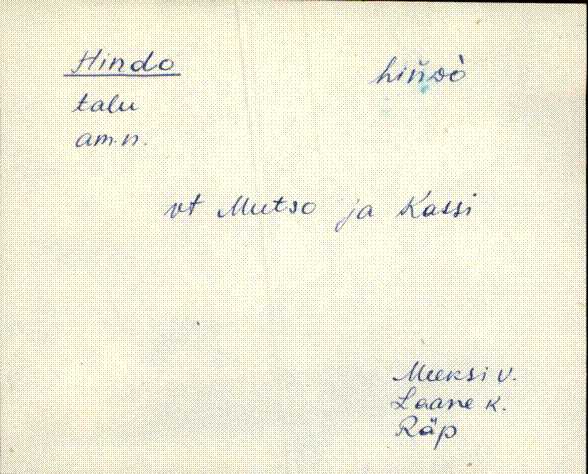 Hindo
hiňdò
talu
am.n.
vt Mutso ja Kassi
Meeksi v.
Laane k.
Räp